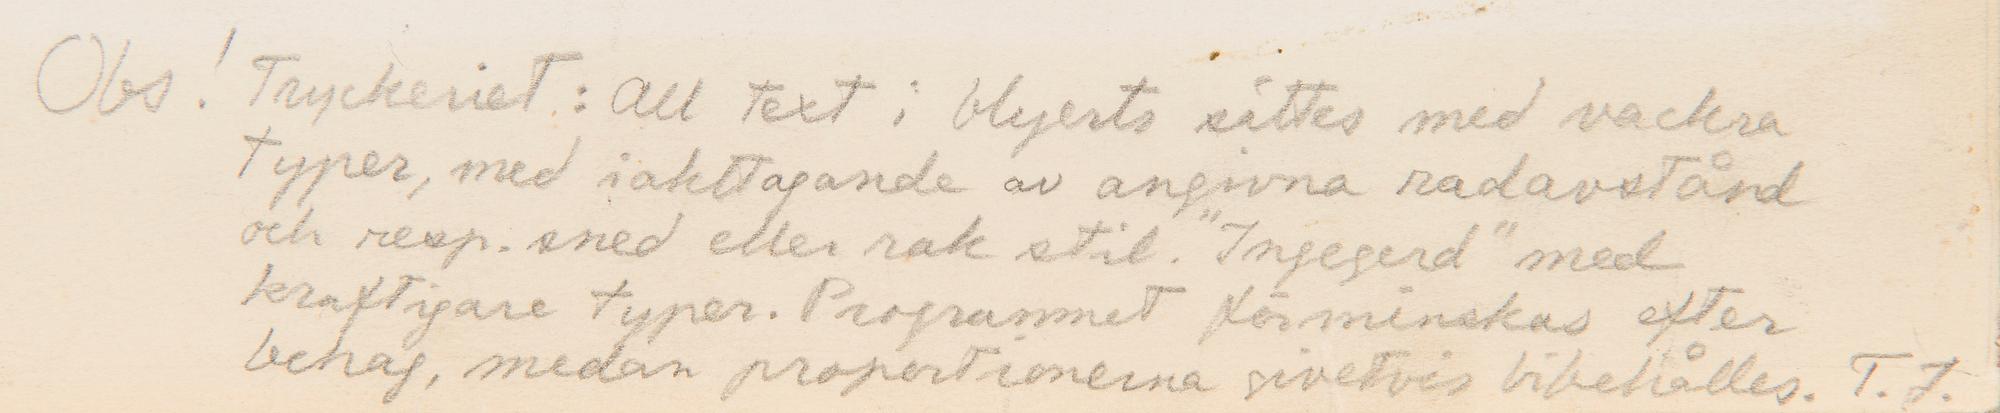 Obs! Tryckeriet: All text i blyerts sättes med vackra
typer, med iakttagande av angivna radavstånd
och resp. sned eller rak stil. "Ingegerd" med
kraftigare typer. Programmet förminskas efter
behag, medan proportionerna givetvis bibehålles. T. J.